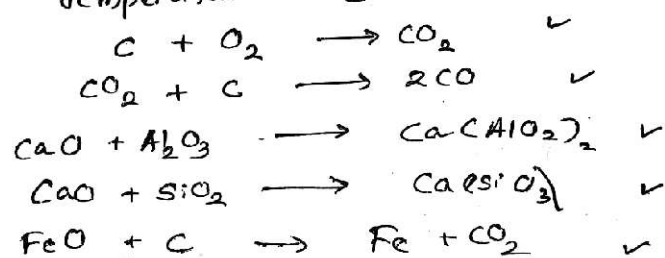 C + O₂ → CO₂ ✓
CO₂ + C → 2CO ✓
CaO + Al₂O₃ → Ca(AlO₂)₂ ✓
CaO + SiO₂ → Ca(SiO₃) ✓
FeO + C → Fe + CO₂ ✓